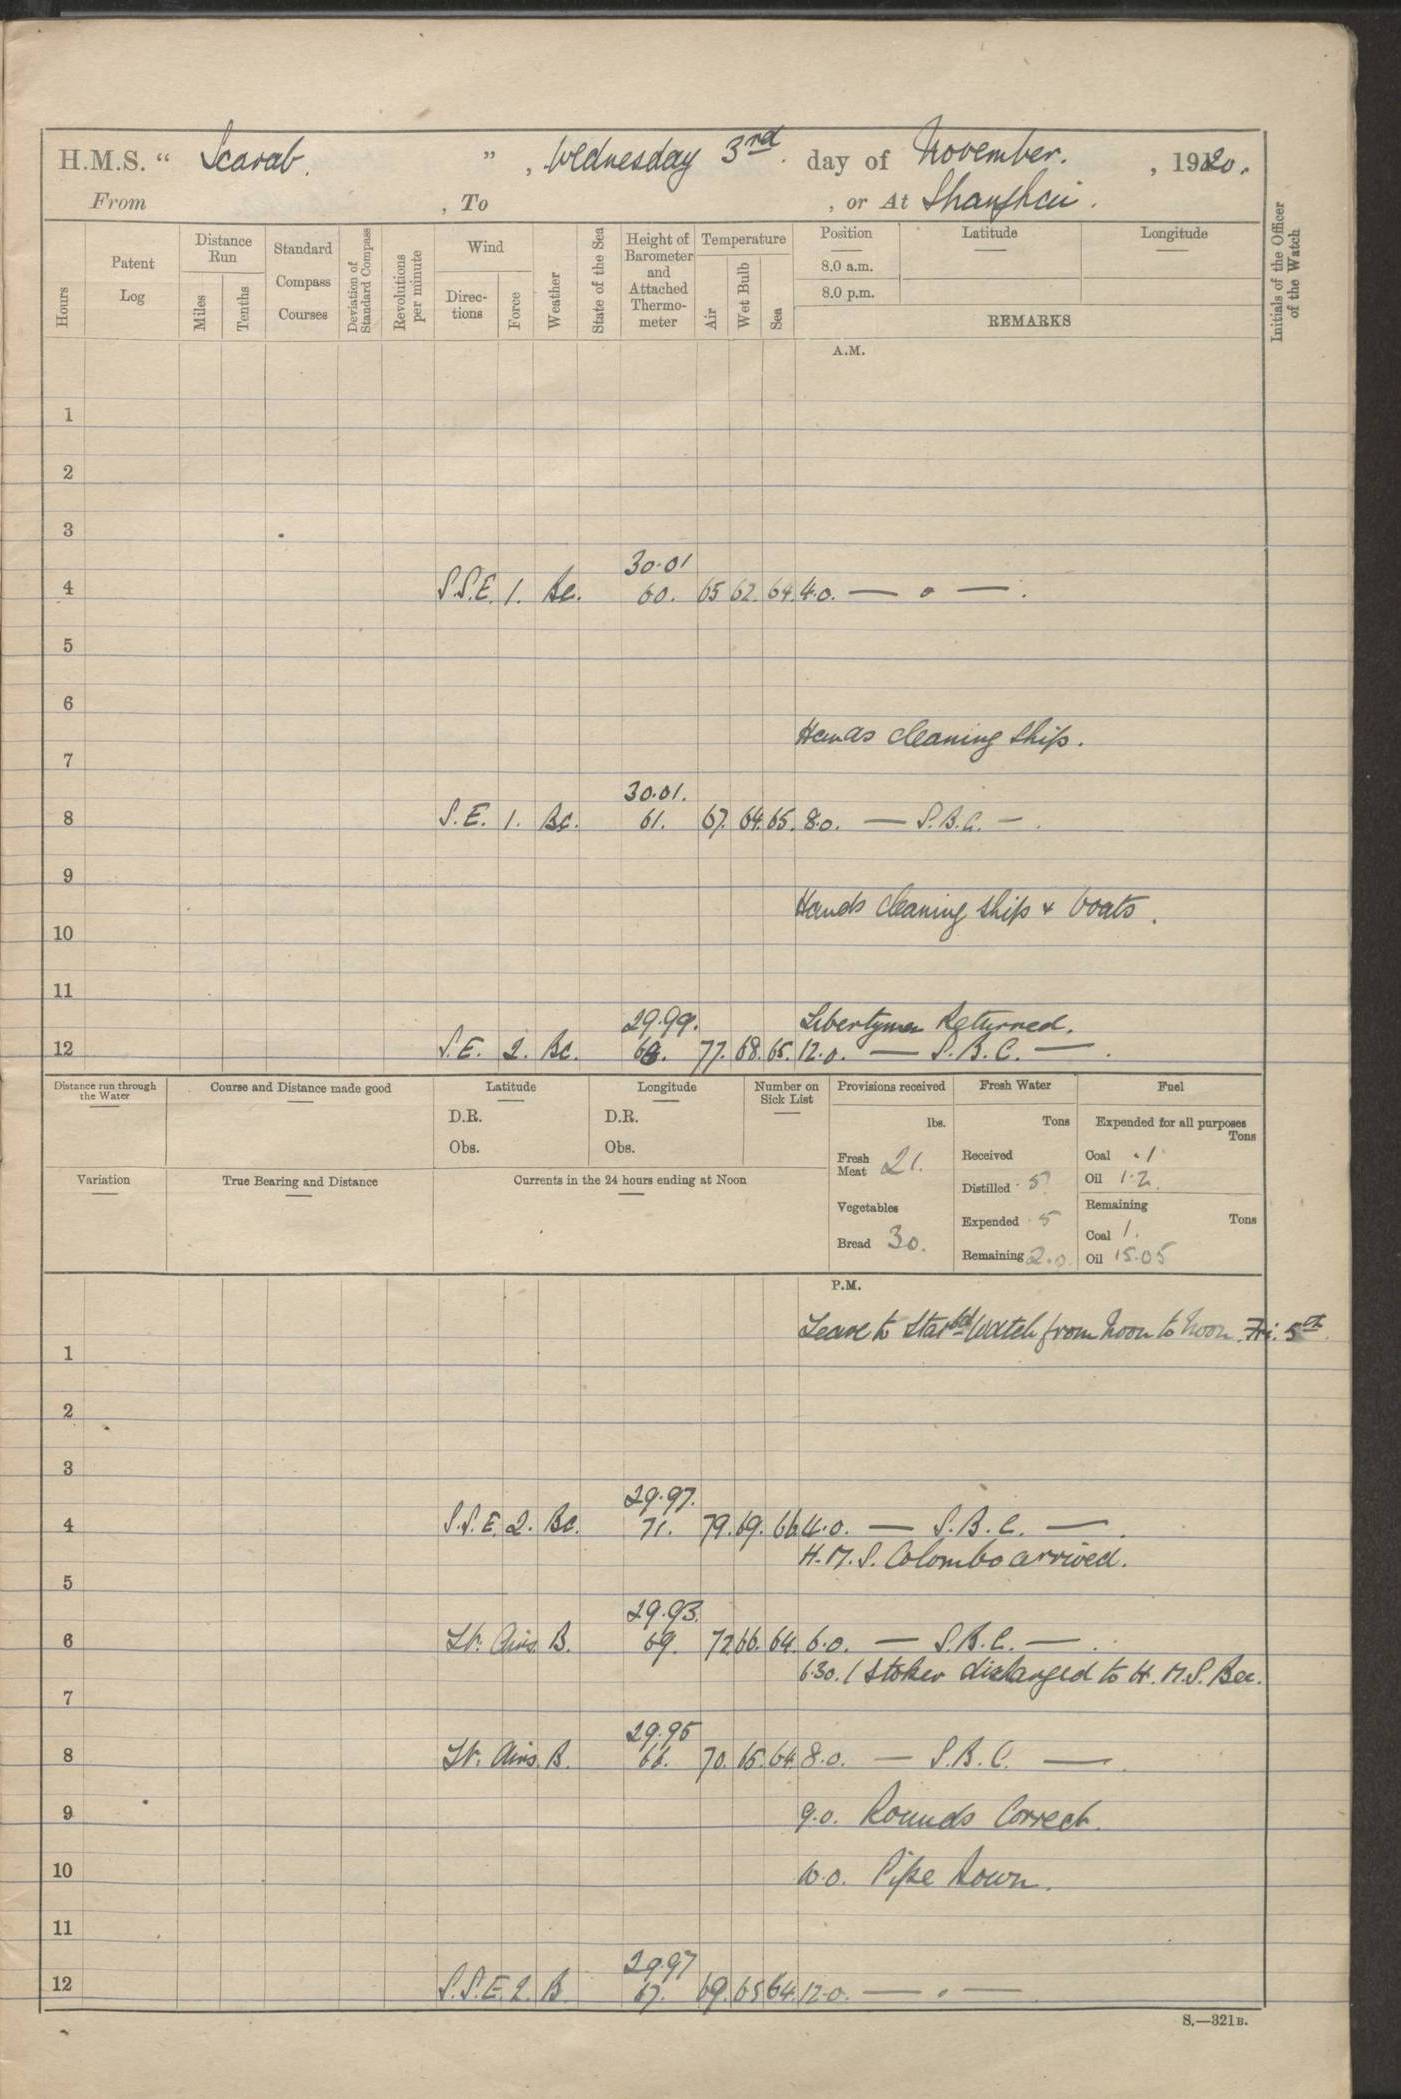 H.M.S. " Scarab. ", Wednesday 3rd. day of November. , 1920.
From , To , or At Shanghai.
Hours
Patent Log
Distance Run
Miles
Tenths
Standard Compass Courses
Deviation of Standard Compass
Revolutions per minute
Wind
Directions
Force
Weather
State of the Sea
Height of Barometer and Attached Thermometer
Temperature
Air
Wet Bulb
Sea
Position
8.0 a.m.
8.0 p.m.
Latitude
Longitude
REMARKS
Initials of the Officer of the Watch
A.M.
1
2
3
30.01
4 S.S.E. 1. Bc. 60. 65 62. 64. 4.0. — " — .
5
6
Hands cleaning ship.
7
30.01.
8 S.E. 1. Bc. 61. 67. 64. 65. 8.0. — S.B.C. — .
9
Hands cleaning ship & boats.
10
11
29.99. Libertymen Returned.
12 S.E. 2. Bc. 77. 68. 65. 12.0. — S.B.C. — .
Distance run through the Water
Course and Distance made good
Latitude
D.R.
Obs.
Longitude
D.R.
Obs.
Number on Sick List
Provisions received
lbs.
Fresh Meat 21.
Vegetables
Bread 30.
Fresh Water
Tons
Received
Distilled .5
Expended .5
Remaining 2.0
Fuel
Expended for all purposes
Tons
Coal .1
Oil 1.2.
Remaining
Tons
Coal 1.
Oil 15.05
Variation
True Bearing and Distance
Currents in the 24 hours ending at Noon
P.M.
Leave to Starbd Watch from Noon to Noon Fri. 5th.
1
2
3
29.97.
4 S.S.E. 2. Bc. 71. 79. 69. 66. 4.0. — S.B.C. — .
H.M.S. Colombo arrived.
5
29.93.
6 Lt. Airs. B. 69. 72. 66. 64. 6.0. — S.B.C. — .
6.30. 1 Stoker discharged to H.M.S. Bee.
7
29.95
8 Lt. Airs. B. 66. 70. 65. 64. 8.0. — S.B.C. — .
9 9.0. Rounds Correct.
10 10.0. Pipe Down.
11
29.97
12 S.S.E. 2. B. 67. 69. 65 64. 12.0. — " —
S.—321B.